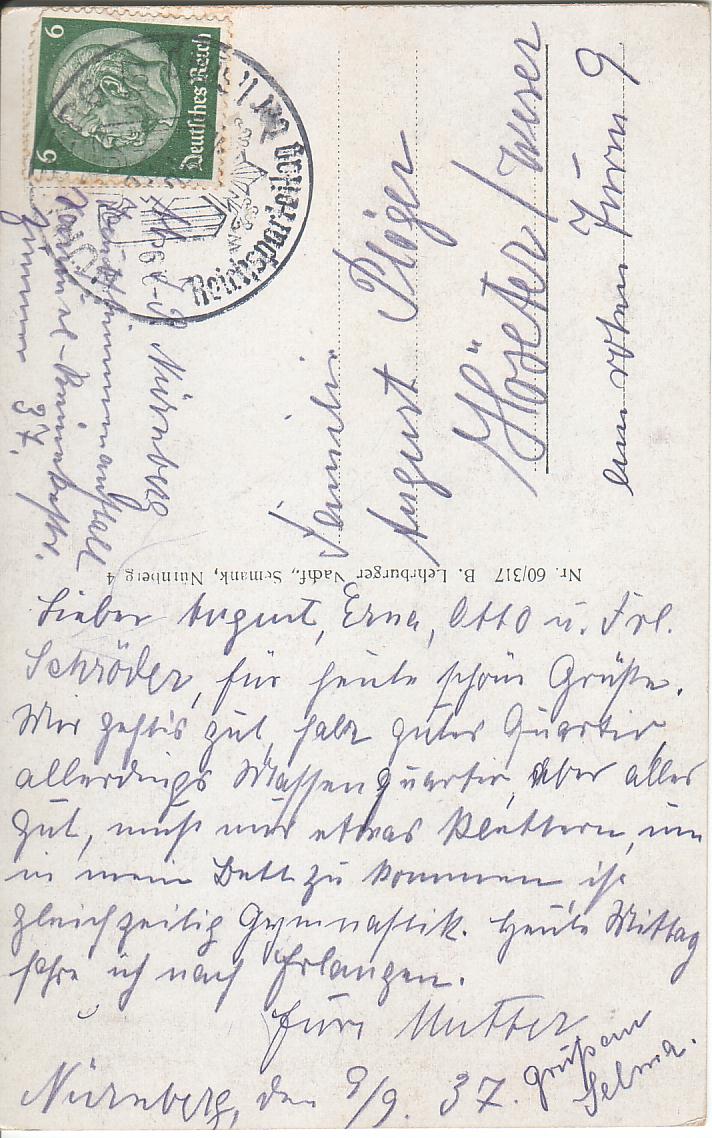 6
6
Deutsches Reich
Reichsparteitag
der
Nürnberg
Zimmer 37.
Familie
August Plöger
Höxter/Weser
am roten Turm 9
Nr. 60/317 B. Lehrburger Nachf., Semank, Nürnberg 4
Lieber August, Erna, Otto u. Frl.
Schröder, für heute schöne Grüße.
Mir geht's gut, habe gutes Quartier
allerdings Massenquartier, aber alles
gut, muß nur etwas klettern, um
in mein Bett zu kommen, ist
gleichzeitig Gymnastik. Heute Mittag
fahre ich nach Erlangen.
Eure Mutter
Nürnberg, den 9/9. 37.
Selma.